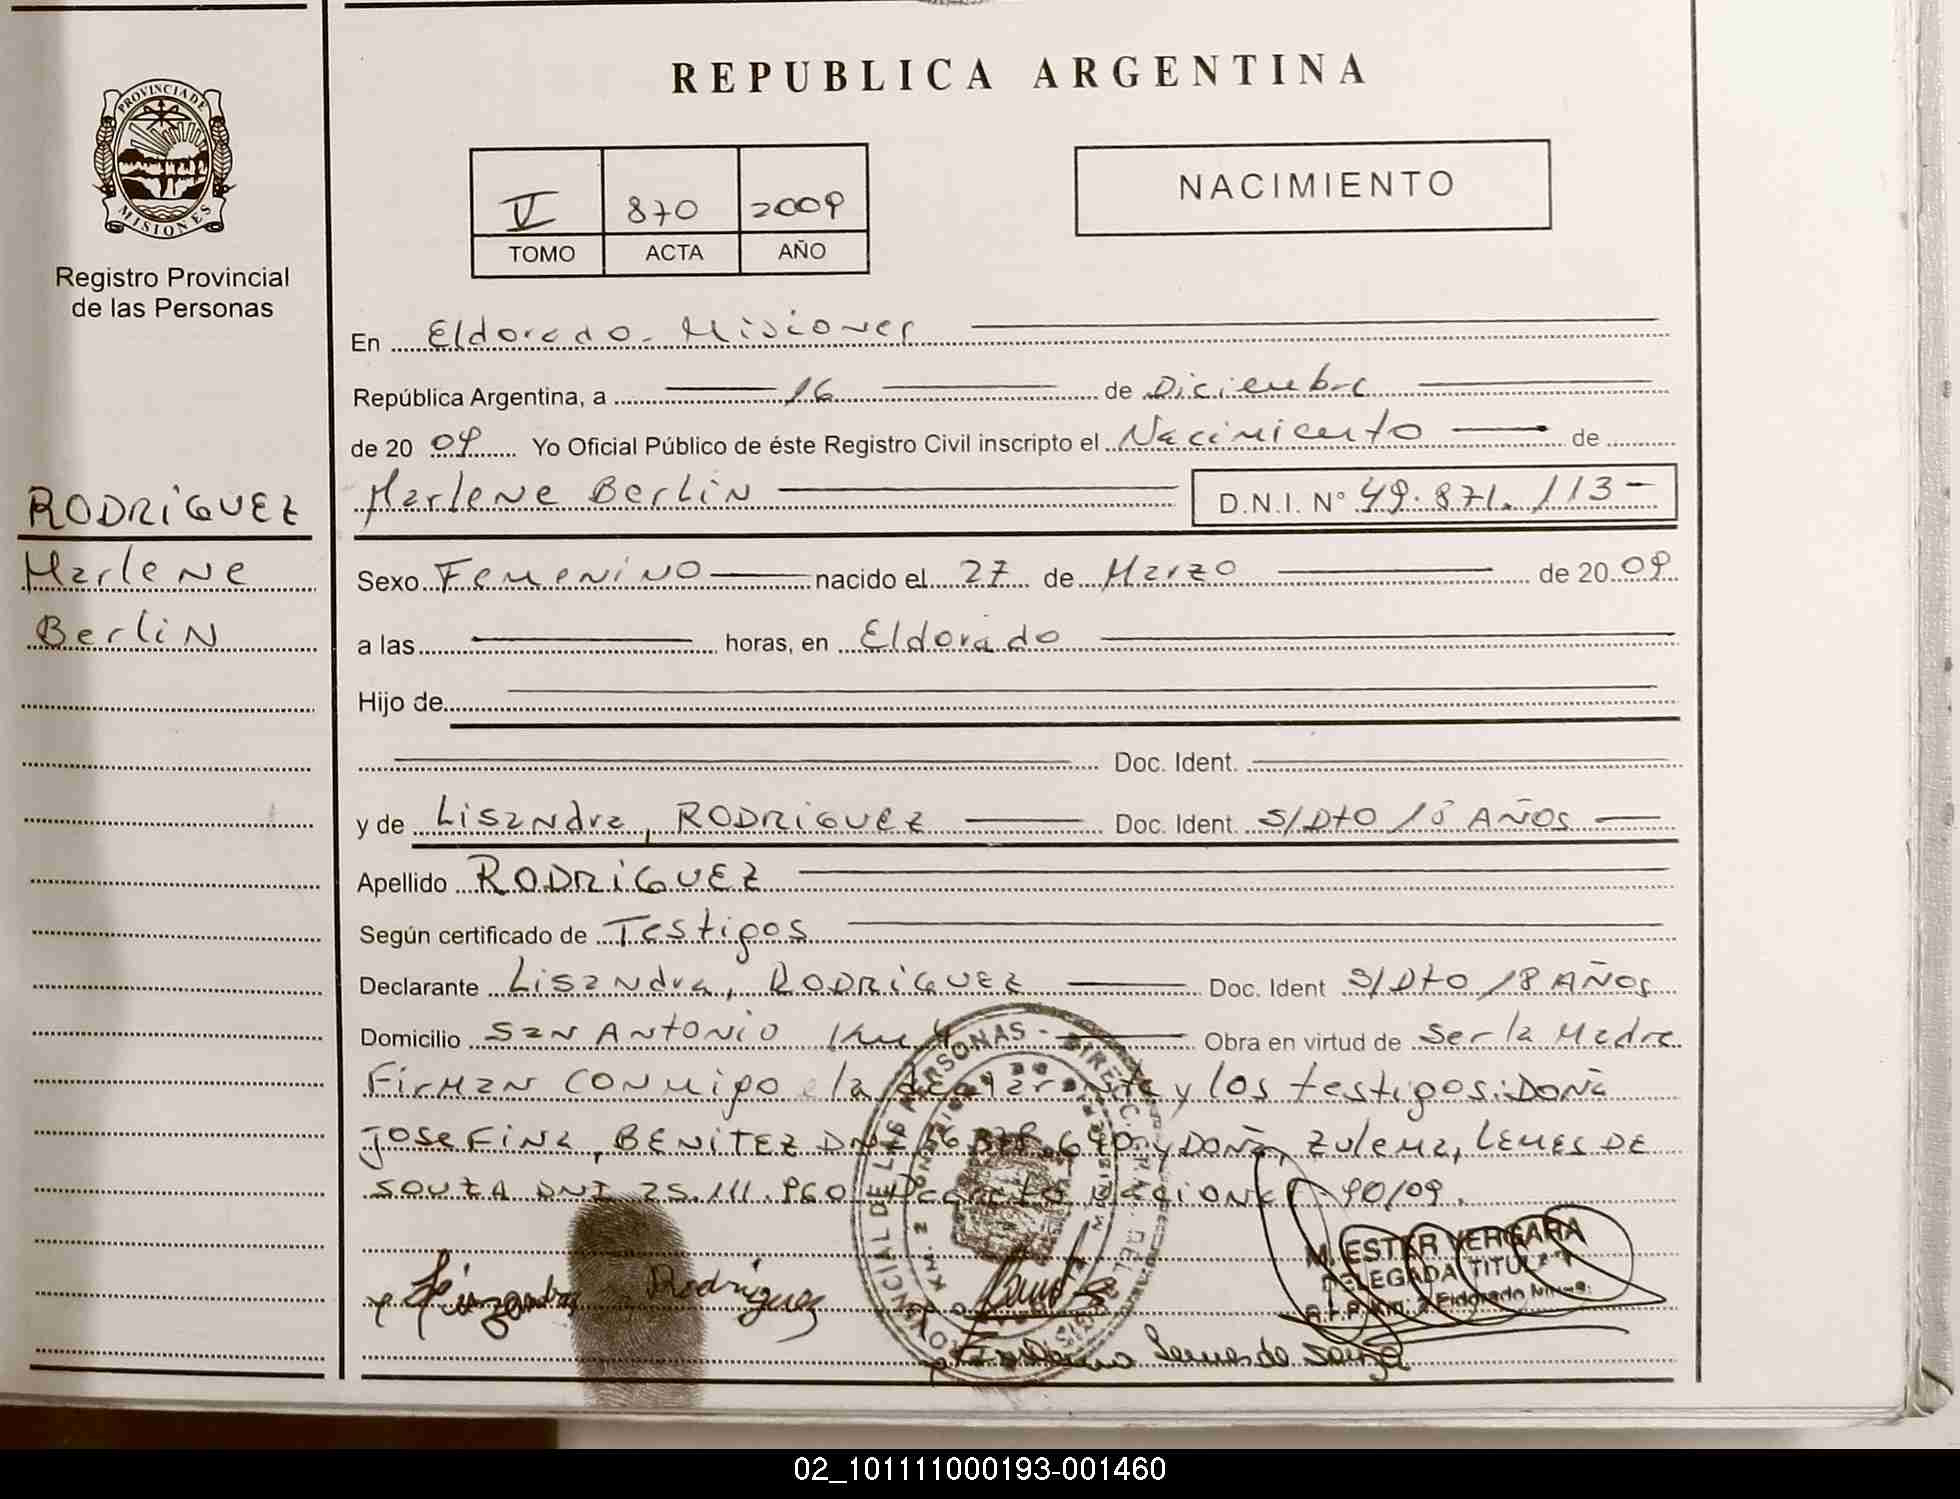 REPUBLICA ARGENTINA
PROVINCIA DE
MISIONES
Registro Provincial
de las Personas
V 870 2009
TOMO ACTA AÑO
NACIMIENTO
En Eldorado - Misiones
República Argentina, a 16 de Diciembre
de 20 09 Yo Oficial Público de éste Registro Civil inscripto el Nacimiento de
RODRIGUEZ
Marlene
Berlin
Marlene Berlin D.N.I. N° 49.871.113-
Sexo Femenino nacido el 27 de Marzo de 20 09
a las horas, en Eldorado
Hijo de
Doc. Ident.
y de Lisandra, RODRIGUEZ Doc. Ident. S/Dto 18 AÑOS
Apellido RODRIGUEZ
Según certificado de Testigos
Declarante Lisandra, RODRIGUEZ Doc. Ident S/Dto 18 AÑOS
Domicilio San Antonio Km 4 Obra en virtud de ser la Madre
Firman conmigo la declarante y los testigos: Doña
Josefina, BENITEZ DNI y Doña, Zulema, LEMES DE
SOUZA DNI 25.111.960 Decreto Nacional 90/09.
Rodriguez
M. ESTER VERGARA
DELEGADA TITULAR
Lemes de Souza
02_101111000193-001460